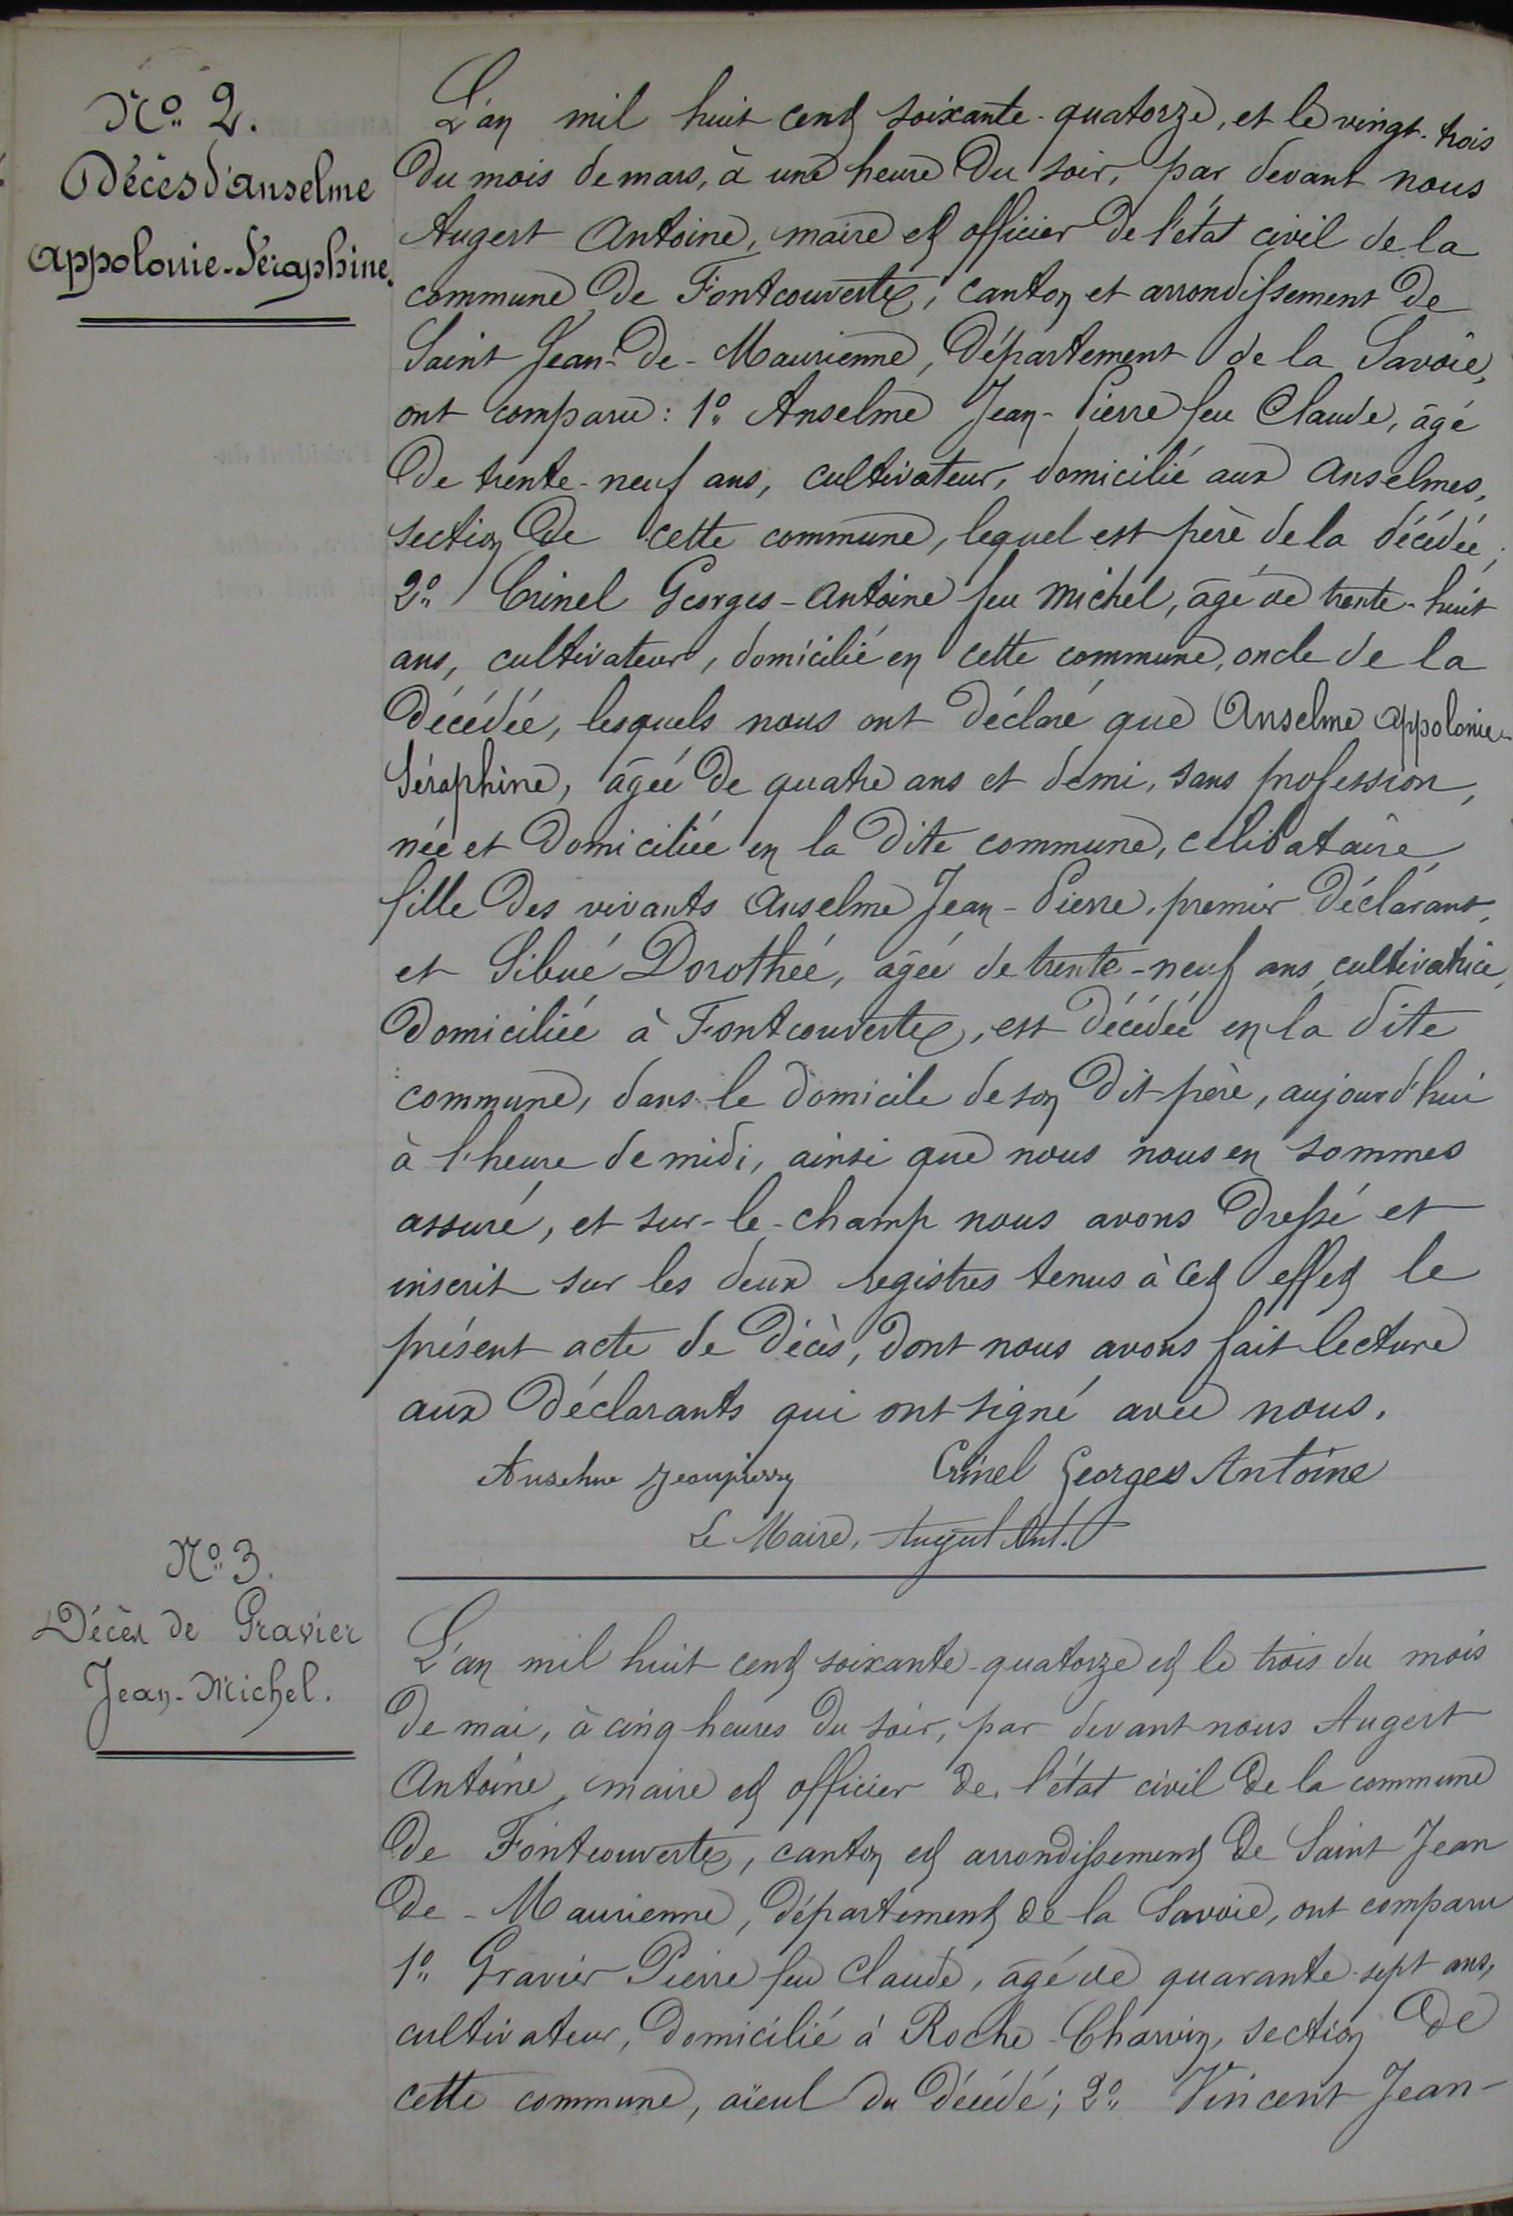 N° 2.
Décès d'Anselme
Appolonie-Séraphine.
L'an mil huit cent soixante-quatorze, et le vingt-trois
du mois de mars, à une heure du soir, par devant nous
Augert Antoine, maire et officier de l'état civil de la
commune de Fontcouverte, canton et arrondissement de
Saint Jean-de-Maurienne, Département de la Savoie,
ont comparu: 1° Anselme Jean-Pierre feu Claude, âgé
de trente-neuf ans, cultivateur, domicilié aux Anselmes,
section de cette commune, lequel est père de la décédée;
2° Crinel Georges-Antoine feu Michel, âgé de trente-huit
ans, cultivateur, domicilié en cette commune, oncle de la
décédée, lesquels nous ont déclaré que Anselme Appolonie-
Séraphine, âgée de quatre ans et demi, sans profession,
née et domiciliée en la dite commune, célibataire,
fille des vivants Anselme Jean-Pierre, premier déclarant,
et Sibué Dorothée, âgée de trente-neuf ans, cultivatrice,
domiciliée à Fontcouverte, est décédée en la dite
commune, dans le domicile de son dit père, aujourd'hui
à l'heure de midi, ainsi que nous nous en sommes
assuré, et sur-le-champ nous avons dressé et
inscrit sur les deux registres tenus à cet effet le
présent acte de décès, dont nous avons fait lecture
aux déclarants qui ont signé avec nous.
Anselme Jeanpierre Crinel Georges Antoine
Le Maire, Augert Ant.
N° 3.
Décès de Gravier
Jean-Michel.
L'an mil huit cent soixante-quatorze et le trois du mois
de mai, à cinq heures du soir, par devant nous Augert
Antoine, maire et officier de l'état civil de la commune
de Fontcouverte, canton et arrondissement de Saint Jean
de-Maurienne, département de la Savoie, ont comparu
1° Gravier Pierre feu Claude, âgé de quarante-sept ans,
cultivateur, domicilié à Roche-Charvin, section de
cette commune, aïeul du décédé; 2° Vincent Jean-